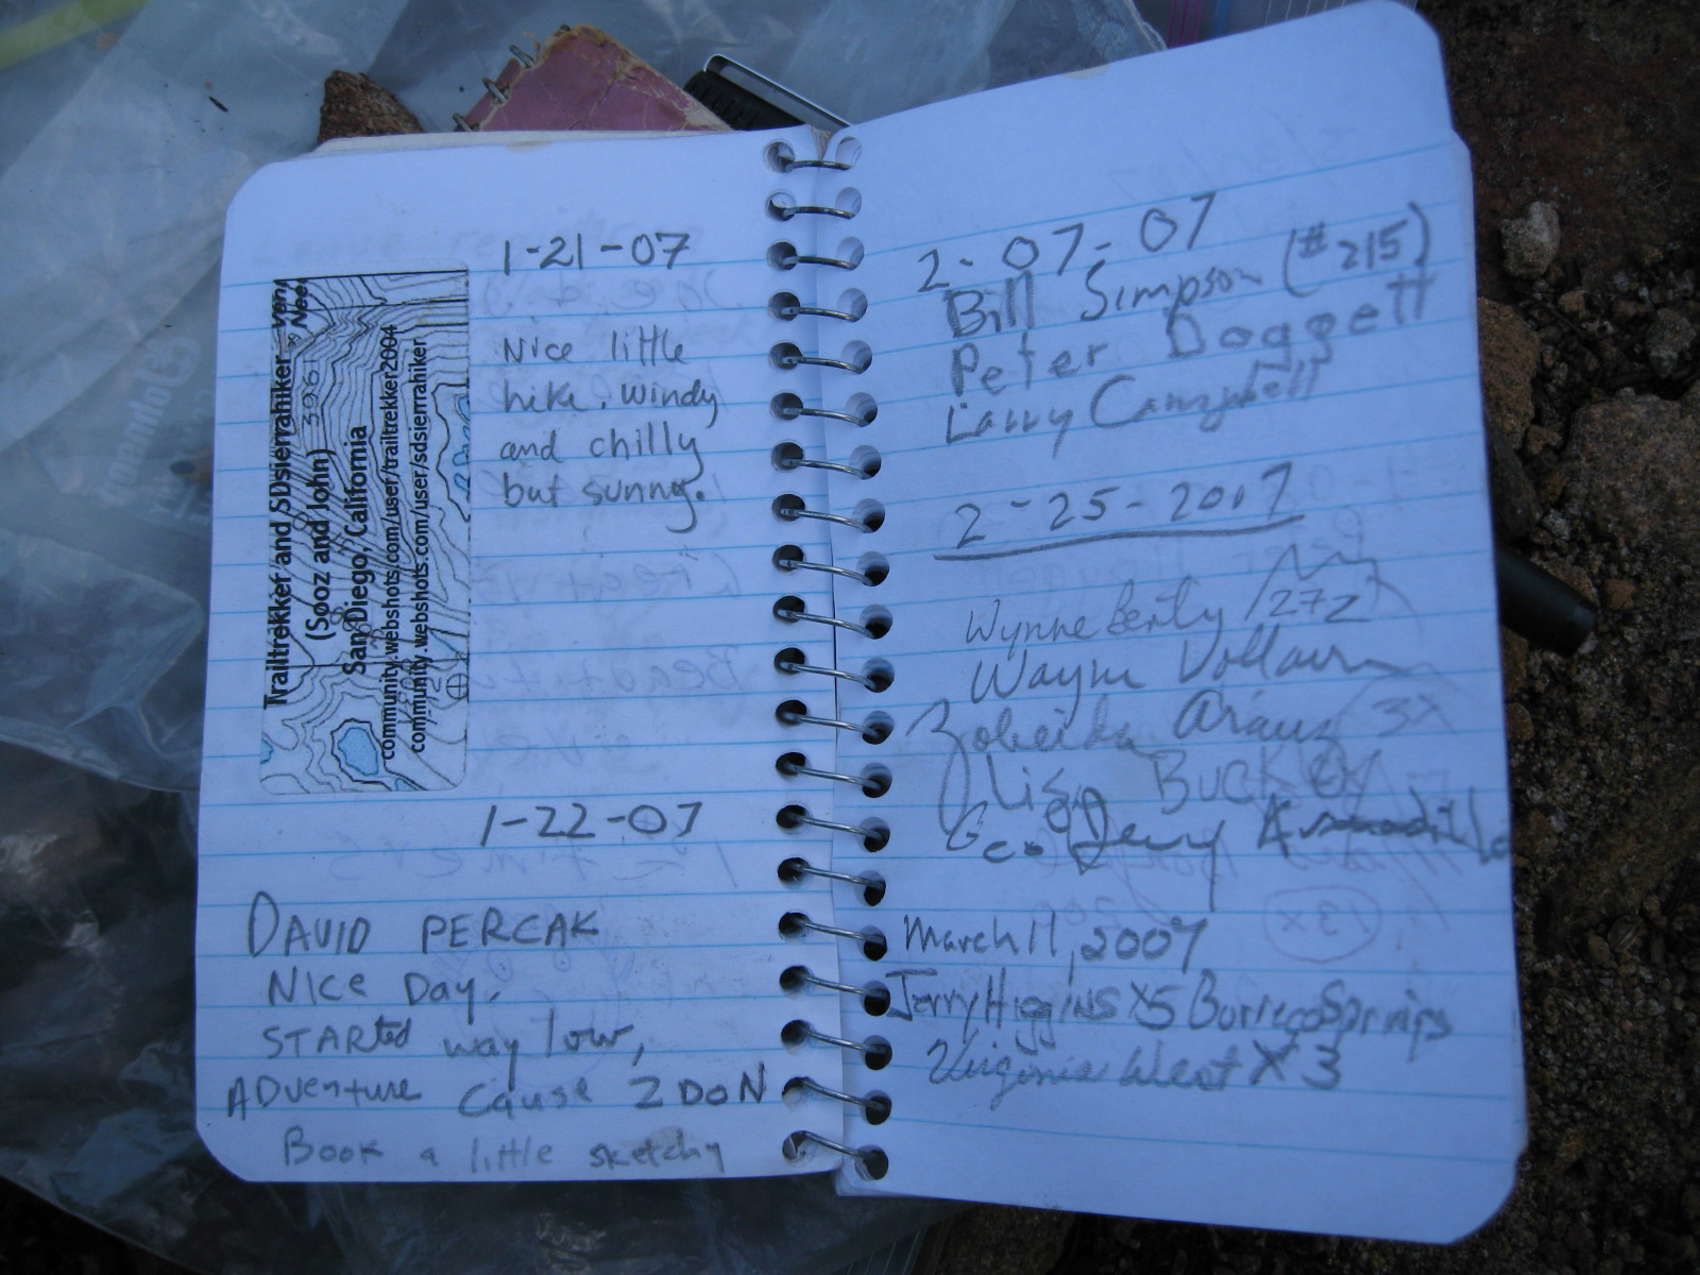 1-21-07
Trailtrekker and SDsierrahiker
(Sooz and John) 3961
San Diego, California
community.webshots.com/user/trailtrekker2004
community.webshots.com/user/sdsierrahiker
Nice little
hike. Windy
and chilly
but sunny.
1-22-07
DAVID PERCAK
NICE DAY.
STARted way low,
ADventure Cause ZDON
Book a little sketchy
2-07-07
Bill Simpson (#215)
Peter Doggett
Larry Campbell
2-25-2017
Wynne Benty /272
Wayne
Zobeida Arauz 3X
Lisa Buck
Jerry
March 11, 2007
Jerry Higgins X5 Borrego Springs
Virginia West X 3
Coleman